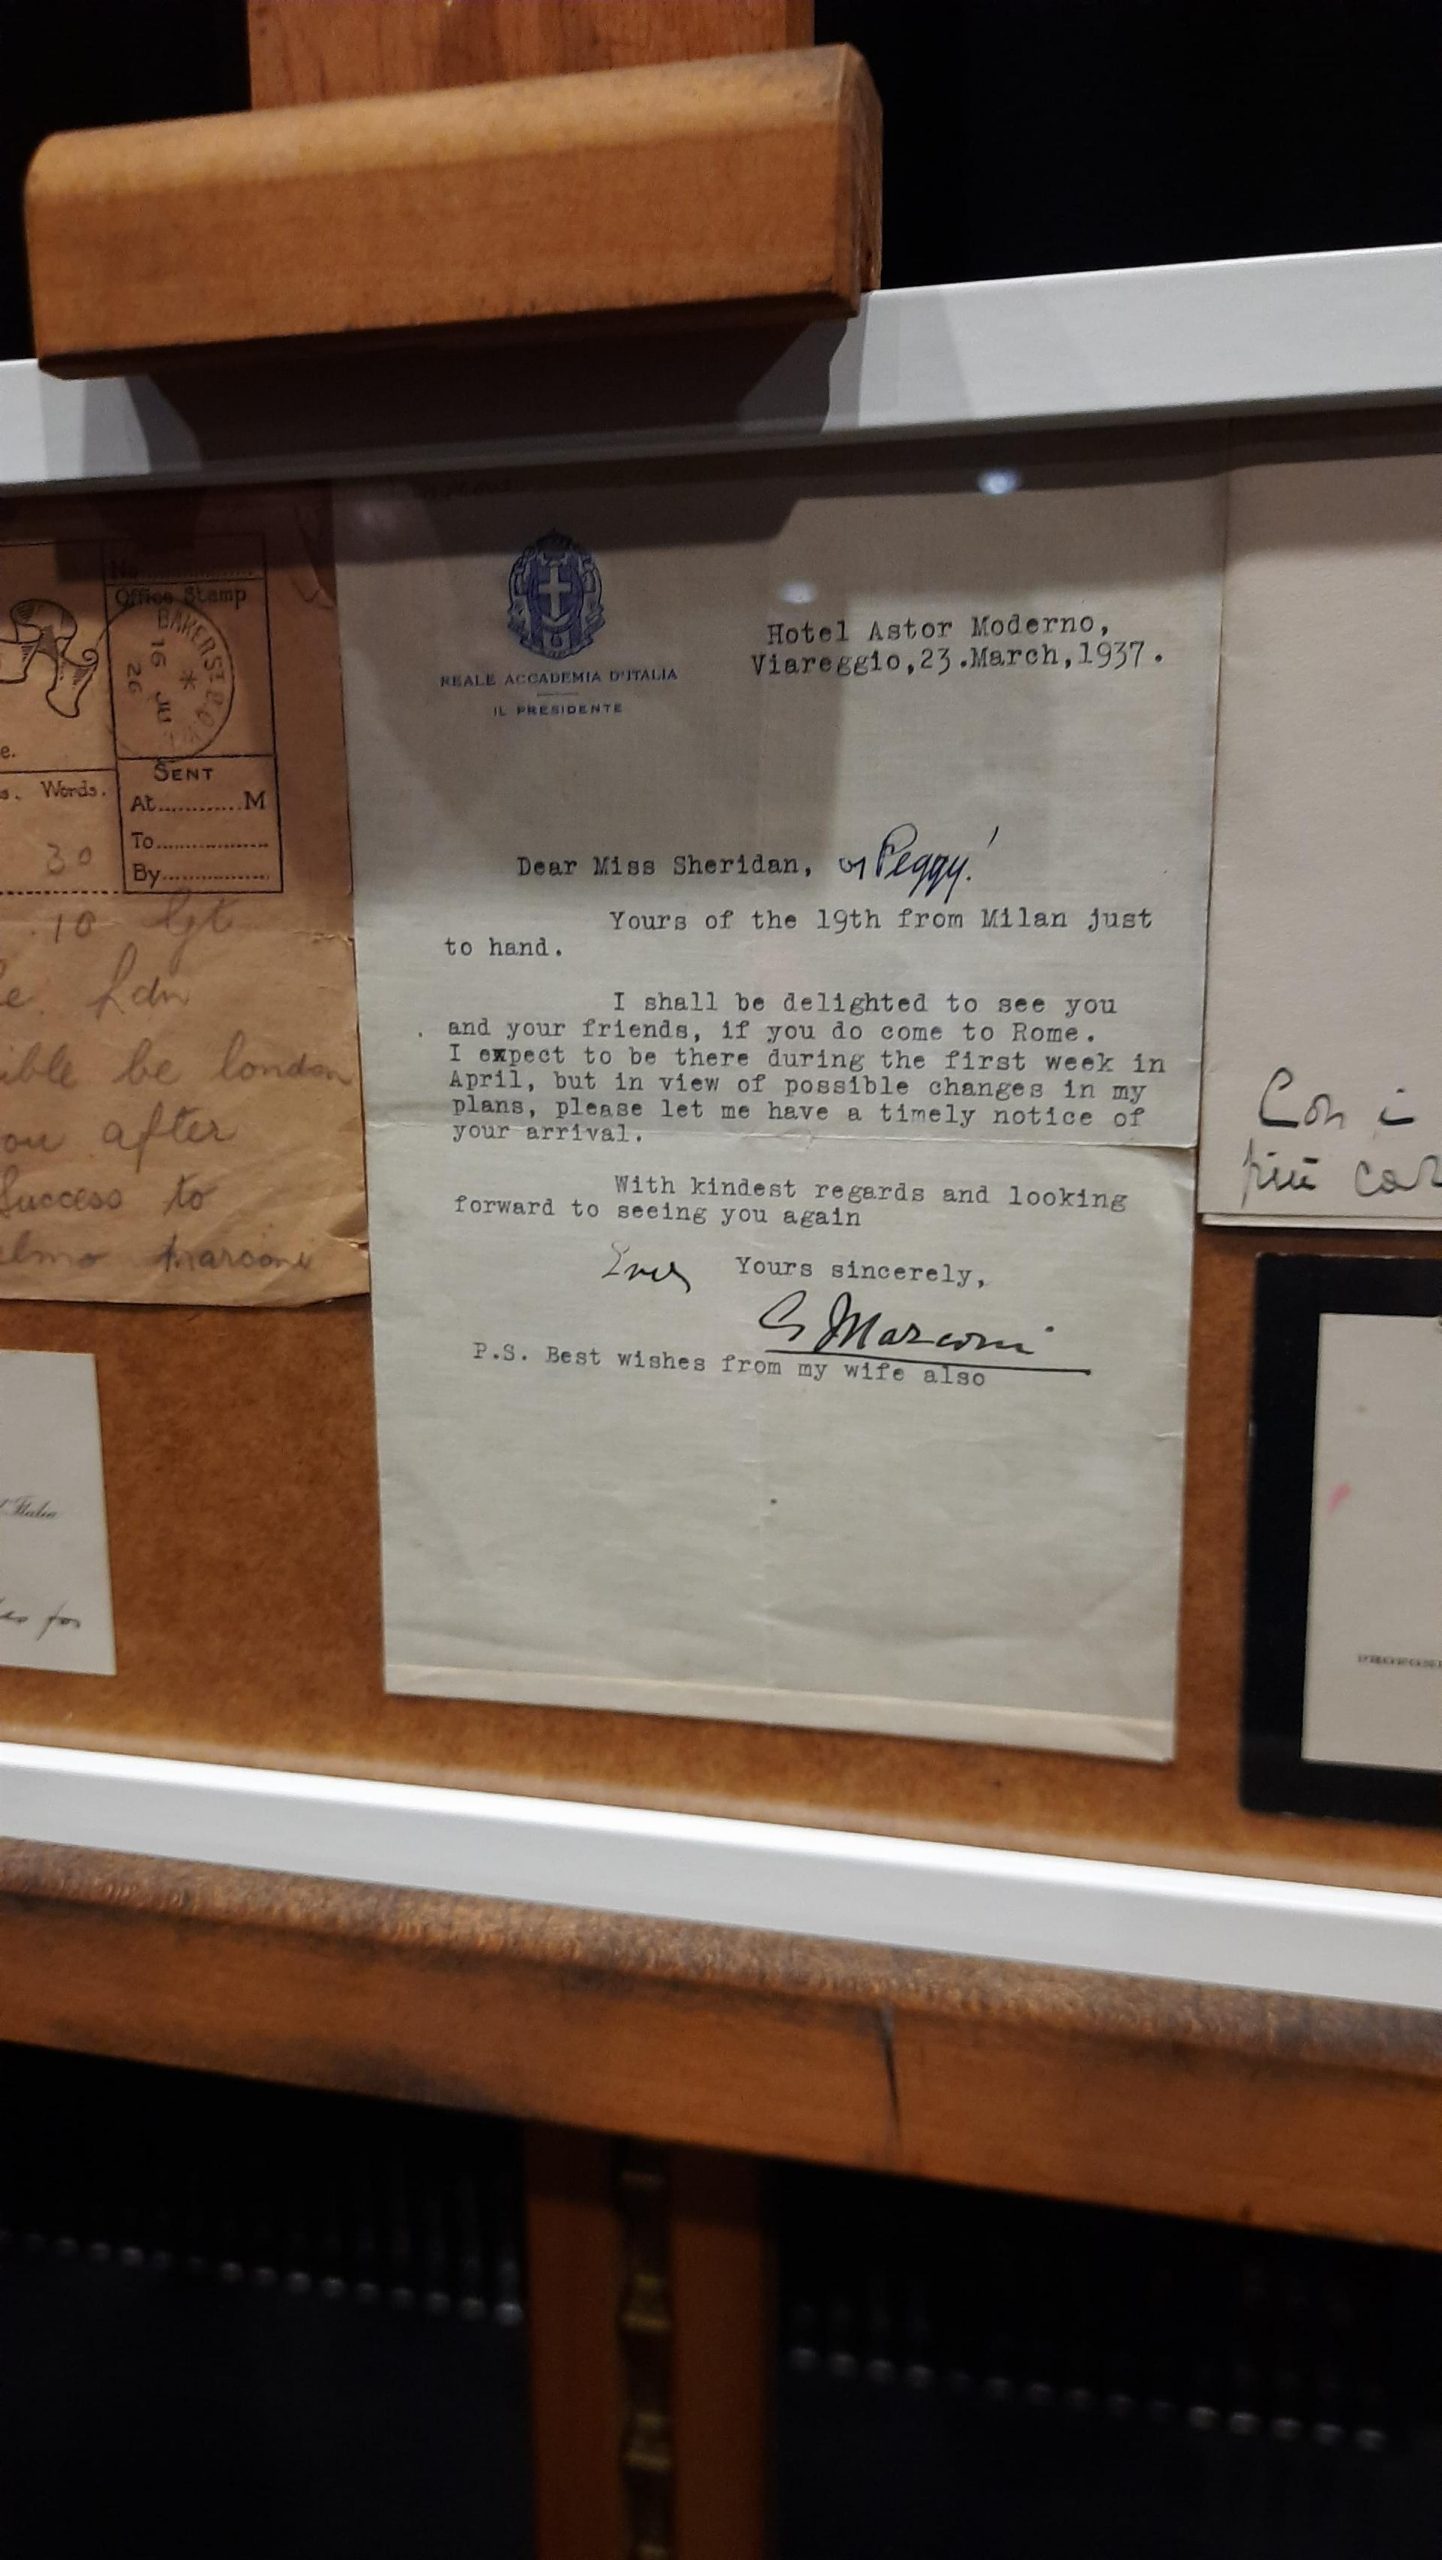 Office Stamp
BAKER ST. B.O.
16 JU 26
SENT
At............M
To..................
By..................
e.
s. Words.
30
10 Lgt
e. Ldn
ible be london
ou after
Success to
elmo Marconi
d'Italia
es for
REALE ACCADEMIA D'ITALIA
IL PRESIDENTE
Hotel Astor Moderno,
Viareggio,23.March,1937.
Dear Miss Sheridan, or Peggy!
Yours of the 19th from Milan just
to hand.
I shall be delighted to see you
and your friends, if you do come to Rome.
I expect to be there during the first week in
April, but in view of possible changes in my
plans, please let me have a timely notice of
your arrival.
With kindest regards and looking
forward to seeing you again
Ever Yours sincerely,
G Marconi
P.S. Best wishes from my wife also
Con i
più car